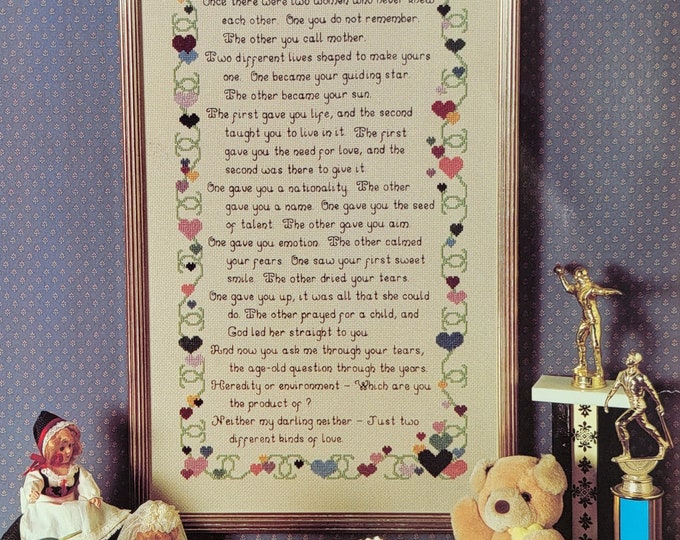 Once there were two women who never knew
each other. One you do not remember.
The other you call mother.
Two different lives shaped to make yours
one. One became your guiding star.
The other became your sun.
The first gave you life, and the second
taught you to live in it. The first
gave you the need for love, and the
second was there to give it.
One gave you a nationality. The other
gave you a name. One gave you the seed
of talent. The other gave you aim.
One gave you emotion. The other calmed
your fears. One saw your first sweet
smile. The other dried your tears.
One gave you up, it was all that she could
do. The other prayed for a child, and
God led her straight to you.
And now you ask me through your tears,
the age-old question through the years.
Heredity or environment - Which are you
the product of?
Neither my darling neither - Just two
different kinds of love.